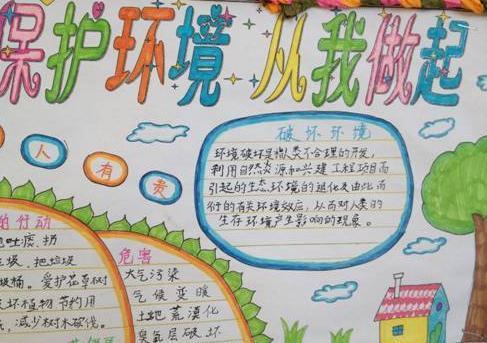 保护环境 从我做起
人 有 责
破坏环境
环境破坏是指人类不合理的开发,
利用自然资源和兴建工程项目而
引起的生态环境的退化及由此而
衍的有关环境效应,从而对人类的
生存环境产生影响的现象。
的行动
地吐痰,扔
垃圾、把垃圾
圾桶。爱护花草树
坏植物 节约用
,减少树木砍伐。
危害
大气污染
气候变暖
土地荒漠化
臭氧层破坏